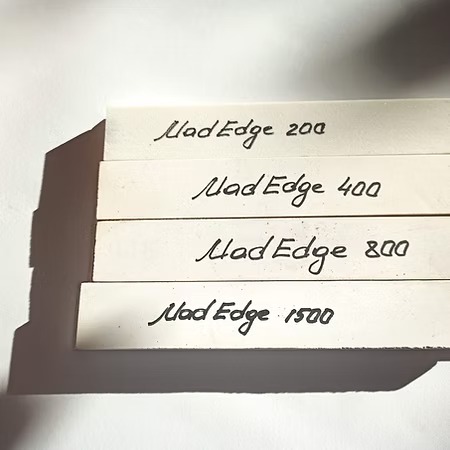 MadEdge 200
MadEdge 400
MadEdge 800
MadEdge 1500